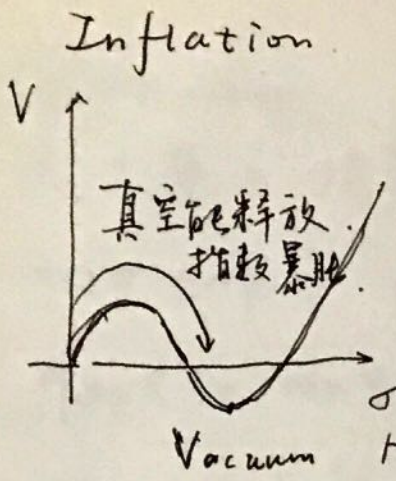 Inflation
V
真空能释放.
指数暴胀.
σ
Vacuum